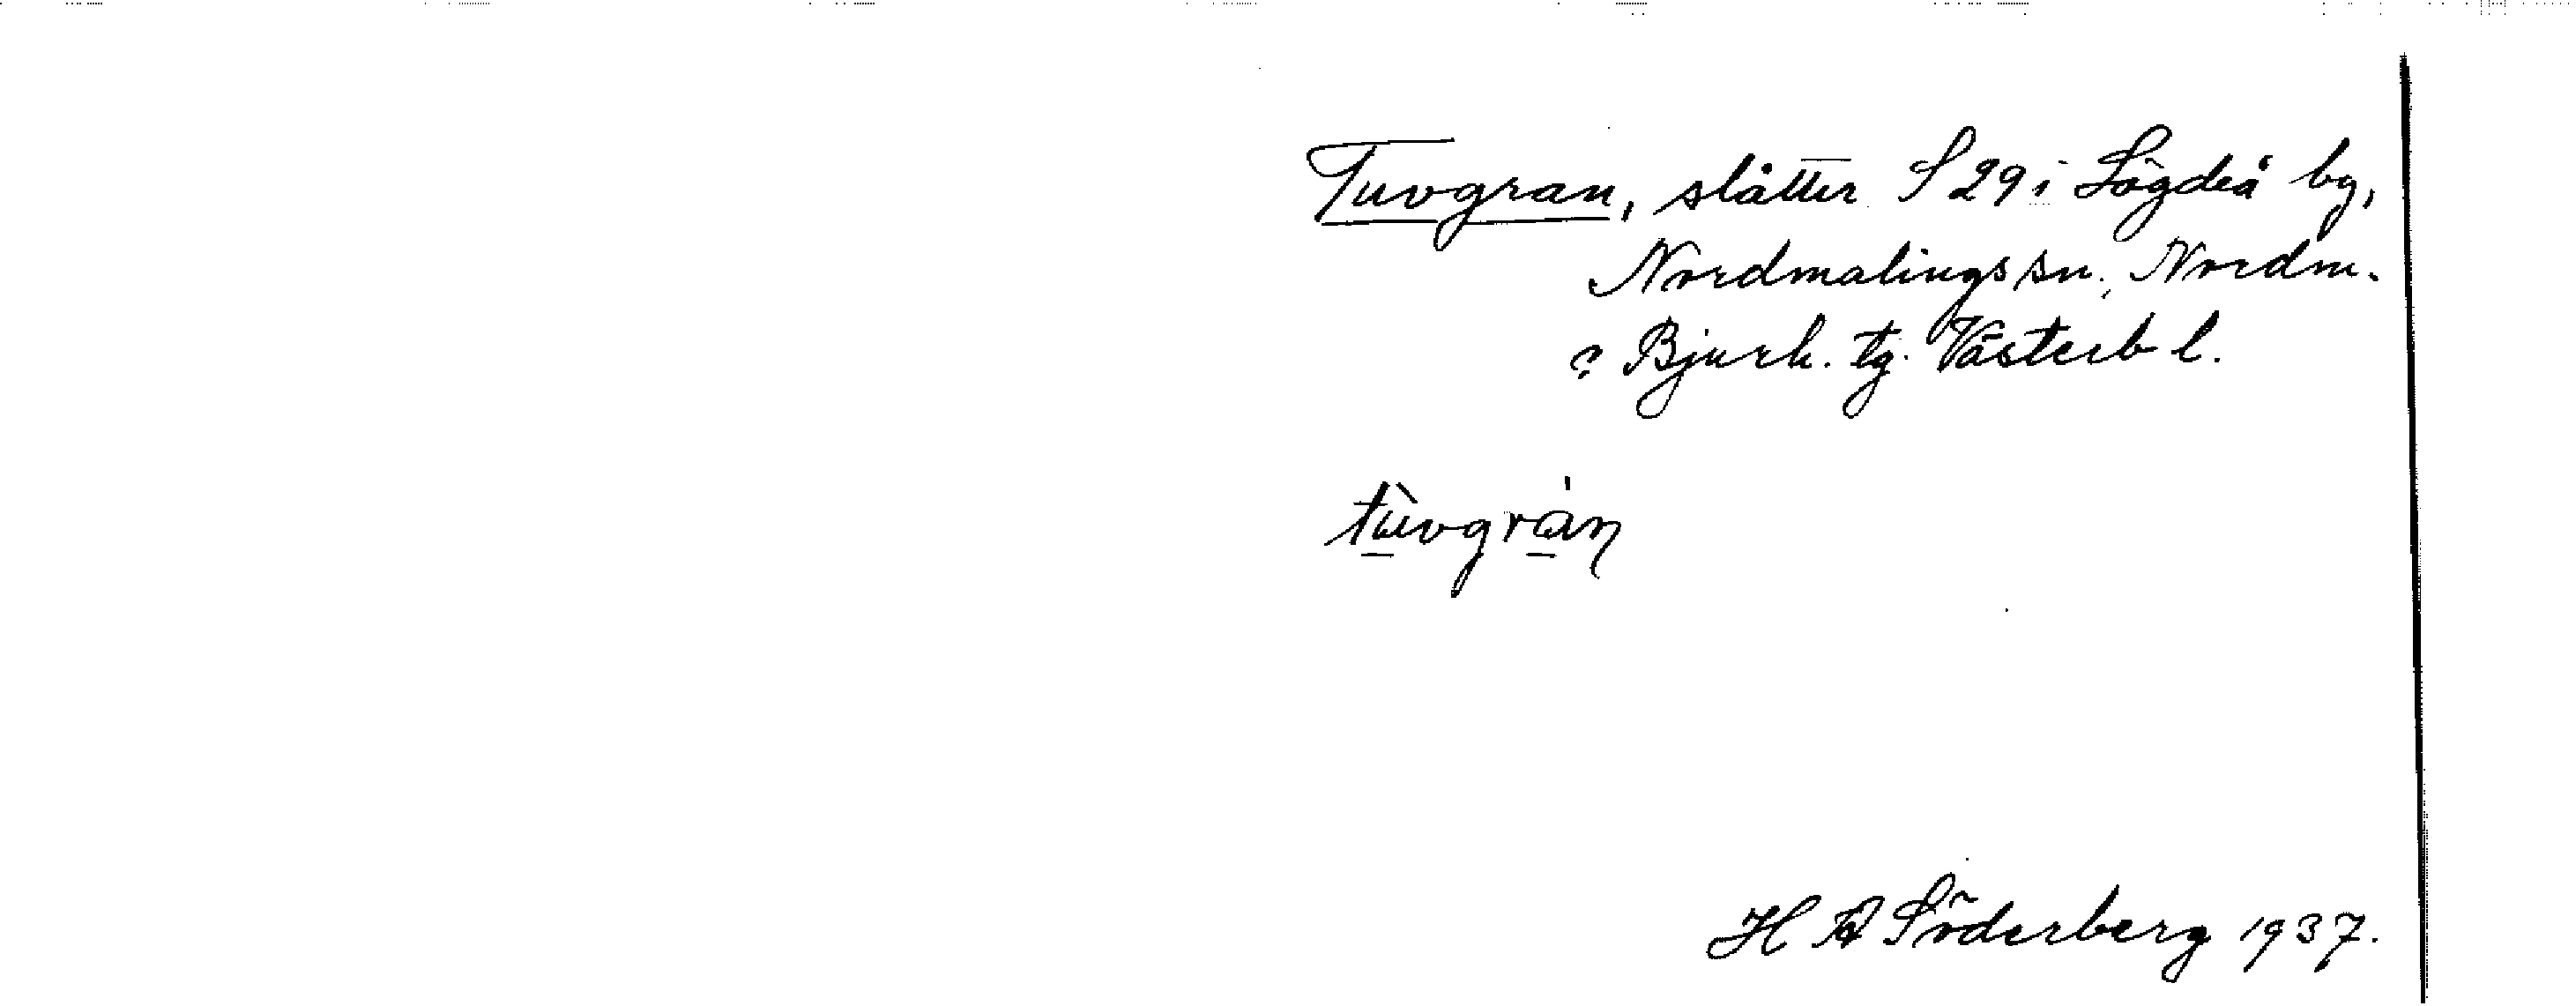 Tuvgran, slåtter S 29 i Lögdeå by,
Nordmalings sn., Nordm.
o Bjurh. tg. Västerb l.
tùvgràn
H A Söderberg 1937.